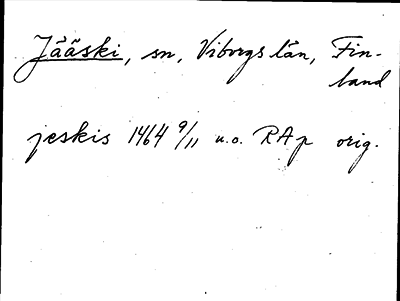 Jääski, sn, Viborgs län, Fin-
land
jeskis 1464 9/11 u.o. RAp orig.